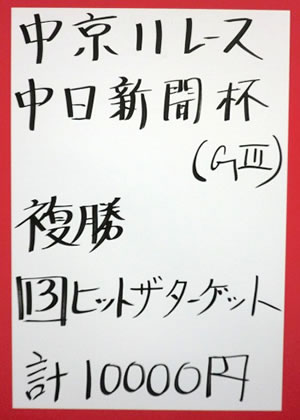 中京11レース
中日新聞杯
(GⅢ)
複勝
13ヒットザターゲット
計10000円